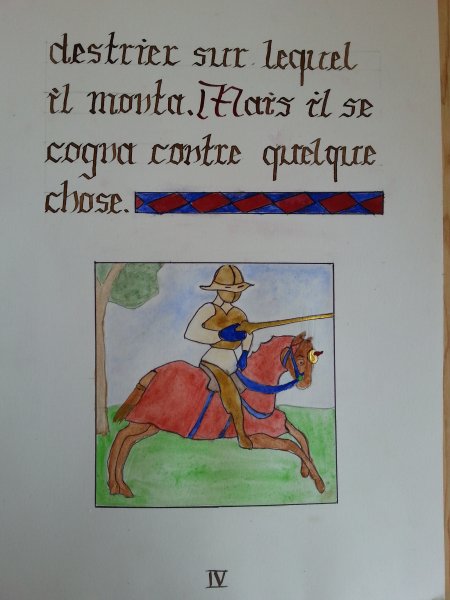 destrier sur lequel
il monta. Mais il se
cogna contre quelque
chose.
IV